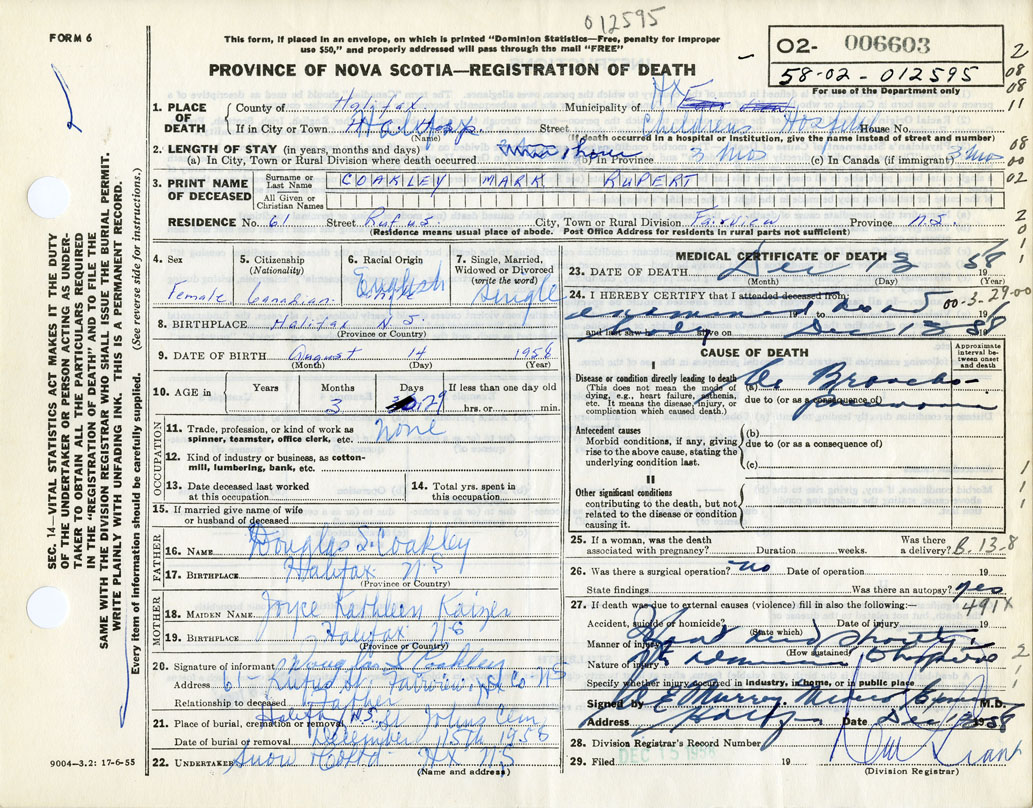 012595
FORM 6
This form, if placed in an envelope, on which is printed "Dominion Statistics—Free, penalty for improper
use $50," and properly addressed will pass through the mail "FREE"
PROVINCE OF NOVA SCOTIA—REGISTRATION OF DEATH
O2- 006603
58-02-012595
For use of the Department only
SEC. 14—VITAL STATISTICS ACT MAKES IT THE DUTY
OF THE UNDERTAKER OR PERSON ACTING AS UNDER-
TAKER TO OBTAIN ALL THE PARTICULARS REQUIRED
IN THE "REGISTRATION OF DEATH" AND TO FILE THE
SAME WITH THE DIVISION REGISTRAR WHO SHALL ISSUE THE BURIAL PERMIT.
WRITE PLAINLY WITH UNFADING INK. THIS IS A PERMANENT RECORD.
Every item of information should be carefully supplied. (See reverse side for instructions.)
1. PLACE OF DEATH
County of Halifax Municipality of
If in City or Town Halifax Street Childrens Hospital House No.
(Name) (If death occurred in a hospital or institution, give the name instead of street and number)
2. LENGTH OF STAY (in years, months and days)
(a) In City, Town or Rural Division where death occurred (b) in Province 3 Mos (c) In Canada (if immigrant) 3 Mos
3. PRINT NAME OF DECEASED
Surname or Last Name COAKLEY MARK RUPERT
All Given or Christian Names
RESIDENCE No. 61 Street Rufus City, Town or Rural Division Fairview Province N.S.
(Residence means usual place of abode. Post Office Address for residents in rural parts not sufficient)
4. Sex
Female
5. Citizenship
(Nationality)
Canadian
6. Racial Origin
English
7. Single, Married,
Widowed or Divorced
(write the word)
Single
8. BIRTHPLACE Halifax N.S.
(Province or Country)
9. DATE OF BIRTH August 14 1958
(Month) (Day) (Year)
10. AGE in
Years Months Days If less than one day old
3 29 hrs. or min.
OCCUPATION
11. Trade, profession, or kind of work as
spinner, teamster, office clerk, etc. None
12. Kind of industry or business, as cotton-
mill, lumbering, bank, etc.
13. Date deceased last worked
at this occupation
14. Total yrs. spent in
this occupation
15. If married give name of wife
or husband of deceased
FATHER
16. NAME Douglas S. Coakley
17. BIRTHPLACE Halifax N.S
(Province or Country)
MOTHER
18. MAIDEN NAME Joyce Kathleen Kaizer
19. BIRTHPLACE Halifax N.S
(Province or Country)
20. Signature of informant Douglas S Coakley
Address 61- Rufus St. Fairview, Hx Co. N.S
Relationship to deceased Father
21. Place of burial, cremation or removal Halifax N.S. St. Johns Cem.
Date of burial or removal December 15th 1958
22. UNDERTAKER Snow & Co Ltd Hx N.S
(Name and address)
9004—3.2: 17-6-55
MEDICAL CERTIFICATE OF DEATH
23. DATE OF DEATH Dec 13 1958
(Month) (Day) (Year)
24. I HEREBY CERTIFY that I attended deceased from:
examined dead
19 to 19
00-3-29-00
and last saw h alive on
body Dec 13 58
CAUSE OF DEATH
Approximate
interval be-
tween onset
and death
I
Disease or condition directly leading to death
(This does not mean the mode of
dying, e.g., heart failure, asthenia,
etc. It means the disease, injury, or
complication which caused death.)
(a) Broncho-
pneumonia
due to (or as a consequence of)
Antecedent causes
Morbid conditions, if any, giving
rise to the above cause, stating the
underlying condition last.
(b)
due to (or as a consequence of)
(c)
II
Other significant conditions
contributing to the death, but not
related to the disease or condition
causing it.
25. If a woman, was the death
associated with pregnancy? Duration weeks. Was there a delivery?
B.13-8
26. Was there a surgical operation? no Date of operation 19
State findings Was there an autopsy? yes
491X
27. If death was due to external causes (violence) fill in also the following:—
Accident, suicide or homicide? Date of injury 19
(State which)
Manner of injury
(How sustained)
Nature of injury
Specify whether injury occurred in industry, in home, or in public place
Signed by E Murray M.D.
Address Halifax Date Dec 13 58
28. Division Registrar's Record Number
29. Filed DEC 15 1958 19
(Division Registrar)
2
08
08
11
08
08
00
02
2
0
1
1
1
1
1
2
1